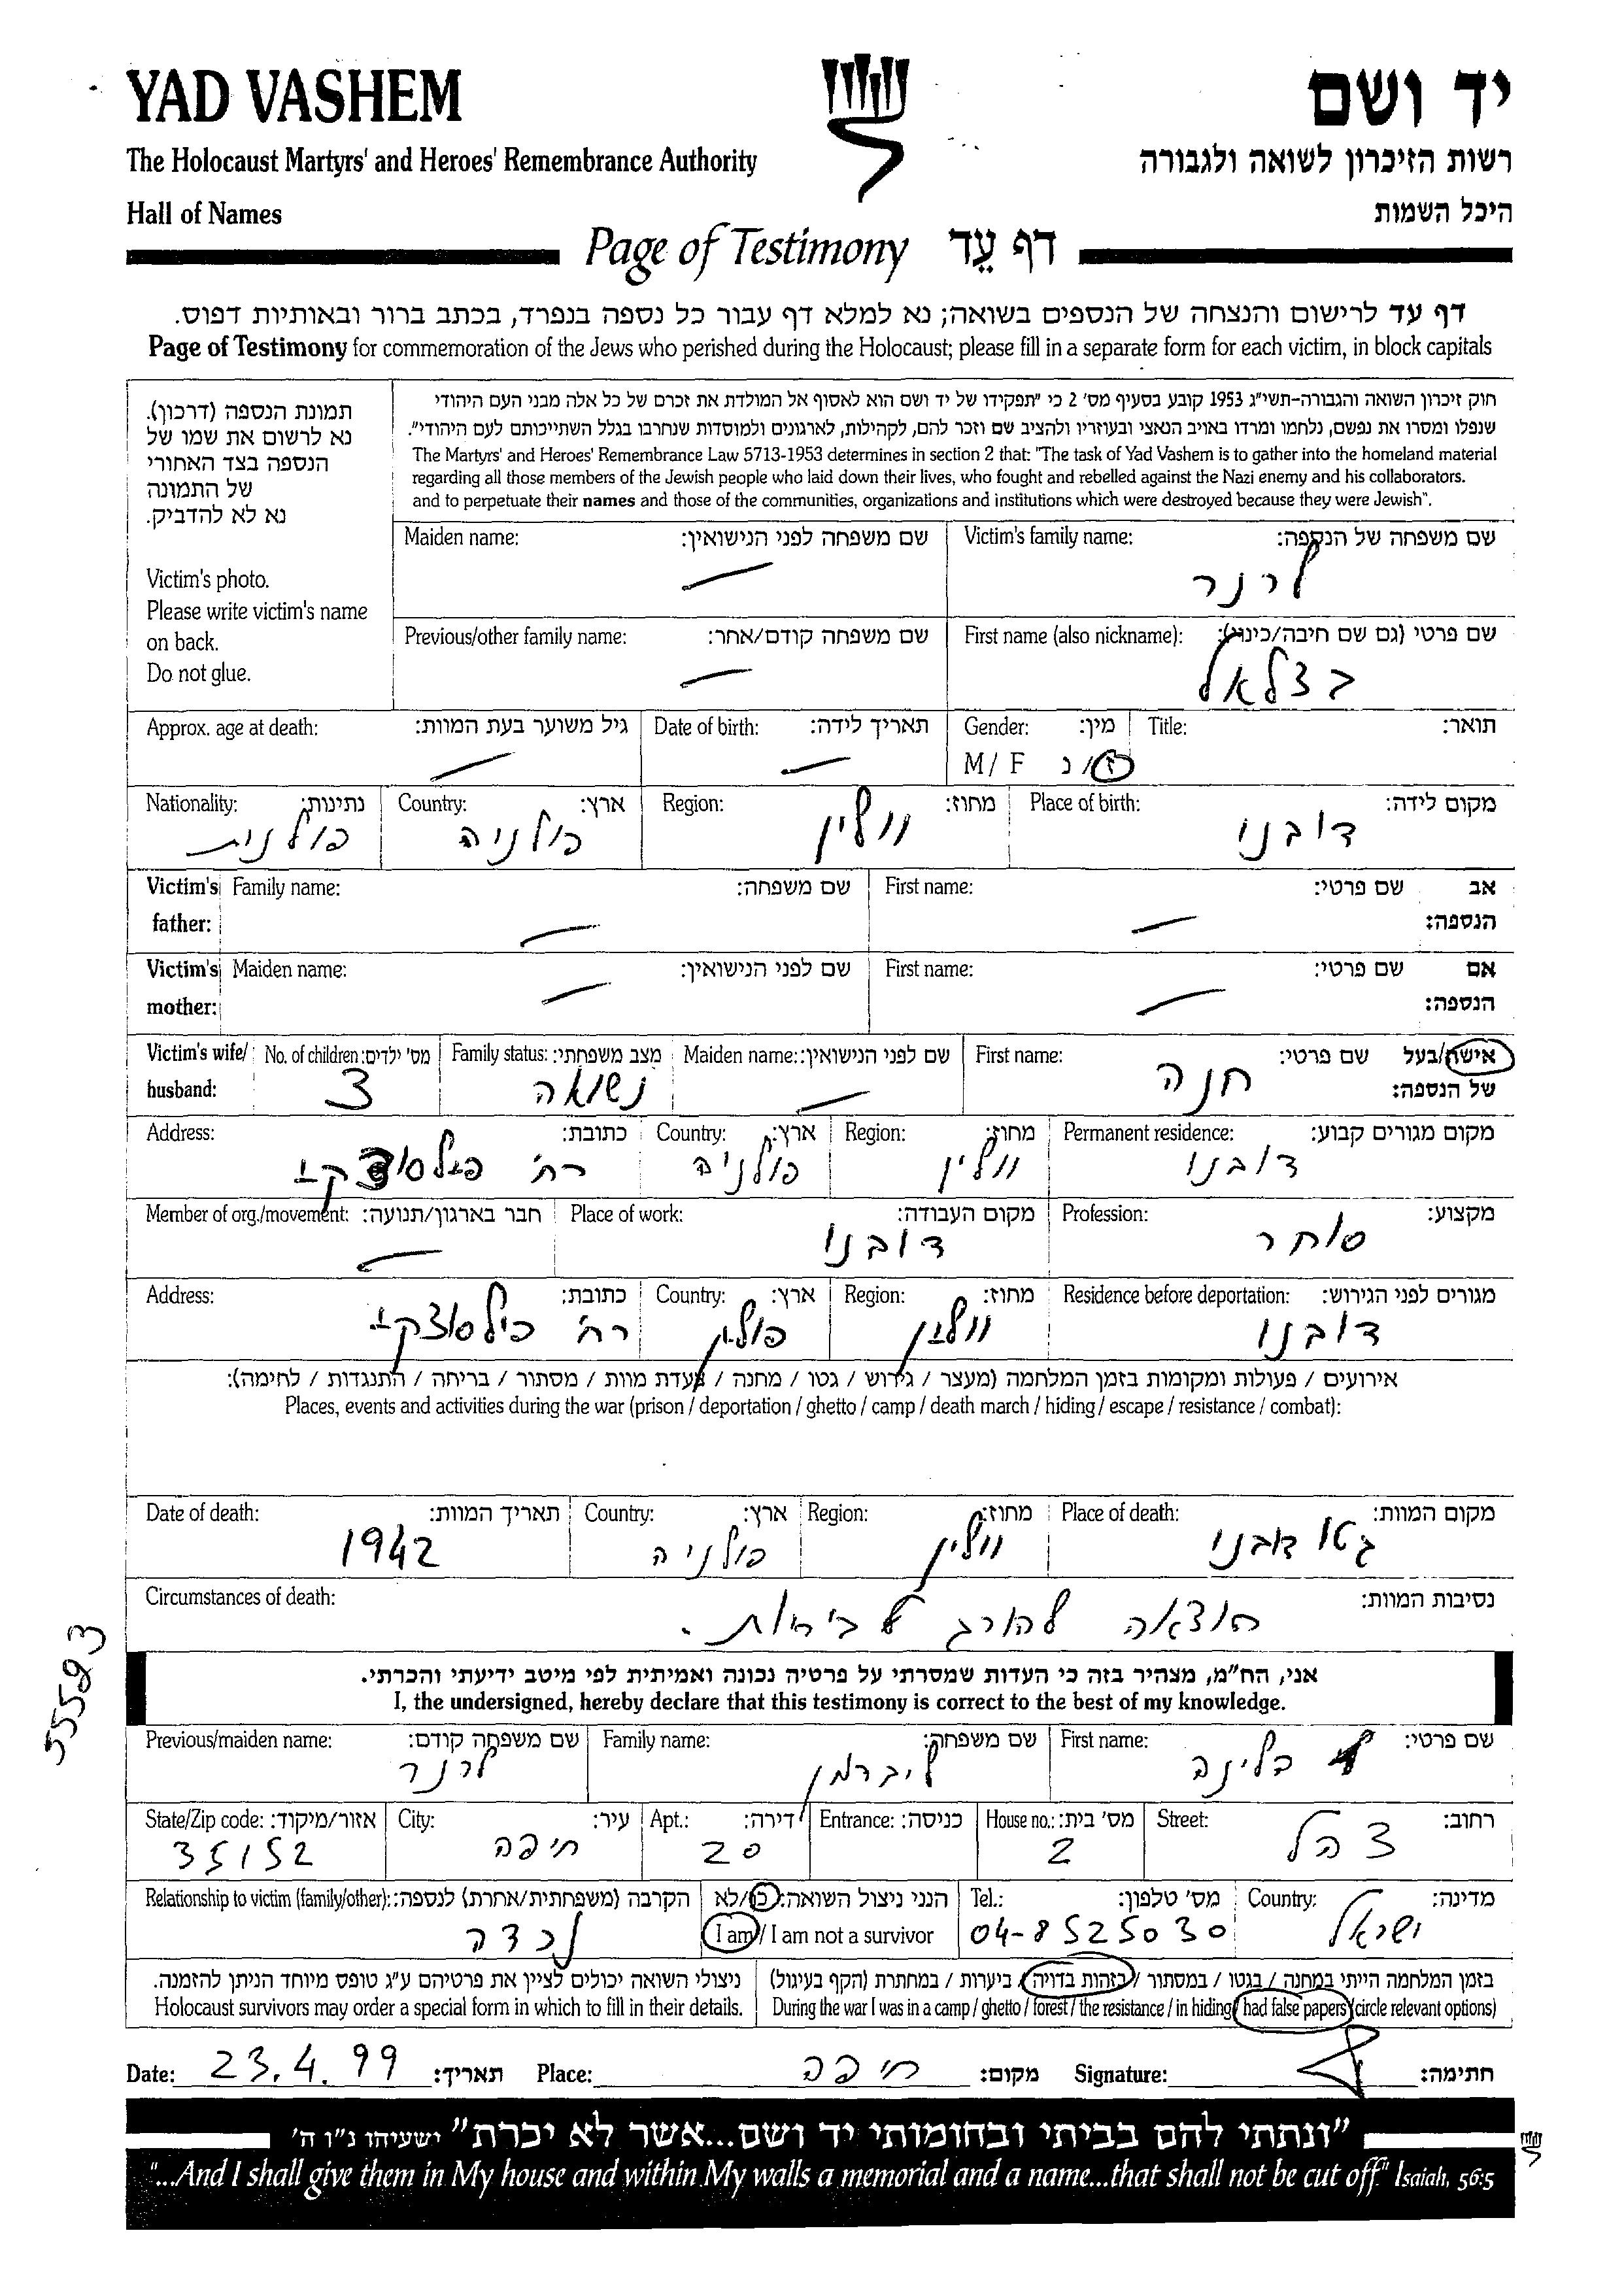 YAD VASHEM
יד ושם
The Holocaust Martyrs' and Heroes' Remembrance Authority
רשות הזיכרון לשואה ולגבורה
Hall of Names
היכל השמות
Page of Testimony דף עֵד
דף עד לרישום והנצחה של הנספים בשואה; נא למלא דף עבור כל נספה בנפרד, בכתב ברור ובאותיות דפוס.
Page of Testimony for commemoration of the Jews who perished during the Holocaust; please fill in a separate form for each victim, in block capitals
תמונת הנספה (דרכון).
נא לרשום את שמו של
הנספה בצד האחורי
של התמונה
נא לא להדביק.
Victim's photo.
Please write victim's name
on back.
Do not glue.
חוק זיכרון השואה והגבורה-תשי"ג 1953 קובע בסעיף מס' 2 כי "תפקידו של יד ושם הוא לאסוף אל המולדת את זכרם של כל אלה מבני העם היהודי
שנפלו ומסרו את נפשם, נלחמו ומרדו באויב הנאצי ובעוזריו ולהציב שם וזכר להם, לקהילות, לארגונים ולמוסדות שנחרבו בגלל השתייכותם לעם היהודי".
The Martyrs' and Heroes' Remembrance Law 5713-1953 determines in section 2 that: "The task of Yad Vashem is to gather into the homeland material
regarding all those members of the Jewish people who laid down their lives, who fought and rebelled against the Nazi enemy and his collaborators.
and to perpetuate their names and those of the communities, organizations and institutions which were destroyed because they were Jewish".
Maiden name: שם משפחה לפני הנישואין: Victim's family name: שם משפחה של הנספה:
לרנר
Previous/other family name: שם משפחה קודם/אחר: First name (also nickname): שם פרטי (גם שם חיבה/כינוי):
בצלאל
Approx. age at death: גיל משוער בעת המוות: Date of birth: תאריך לידה: Gender: מין: Title: תואר:
M/ F ז/נ
Nationality: נתינות: Country: ארץ: Region: מחוז: Place of birth: מקום לידה:
פולנית פולניה ווולין דובנו
Victim's Family name: שם משפחה: First name: שם פרטי: אב
father: הנספה:
Victim's Maiden name: שם לפני הנישואין: First name: שם פרטי: אם
mother: הנספה:
Victim's wife/ No. of children: מס' ילדים: Family status: מצב משפחתי: Maiden name: שם לפני הנישואין: First name: שם פרטי: אישה/בעל
husband: 3 נשואה חנה של הנספה:
Address: כתובת: Country: ארץ: Region: מחוז: Permanent residence: מקום מגורים קבוע:
רח' פילסוצקי פולניה וולין דובנו
Member of org./movement: חבר בארגון/תנועה: Place of work: מקום העבודה: Profession: מקצוע:
דובנו סוחר
Address: כתובת: Country: ארץ: Region: מחוז: Residence before deportation: מגורים לפני הגירוש:
רח' פילסוצקי פולין וולין דובנו
אירועים / פעולות ומקומות בזמן המלחמה (מעצר / גירוש / גטו / מחנה / צעדת מוות / מסתור / בריחה / התנגדות / לחימה):
Places, events and activities during the war (prison / deportation / ghetto / camp / death march / hiding / escape / resistance / combat):
Date of death: תאריך המוות: Country: ארץ: Region: מחוז: Place of death: מקום המוות:
1942 פולניה וולין גטו דובנו
Circumstances of death: נסיבות המוות:
הוצאה להורג ע"י יריות.
55583
אני, הח"מ, מצהיר בזה כי העדות שמסרתי על פרטיה נכונה ואמיתית לפי מיטב ידיעתי והכרתי.
I, the undersigned, hereby declare that this testimony is correct to the best of my knowledge.
Previous/maiden name: שם משפחה קודם: Family name: שם משפחה: First name: שם פרטי:
לרנר ליברמן הלינה
State/Zip code: אזור/מיקוד: City: עיר: Apt.: דירה: Entrance: כניסה: House no.: מס' בית: Street: רחוב:
35152 חיפה 20 2 צהל
Relationship to victim (family/other): הקרבה (משפחתית/אחרת) לנספה: הנני ניצול השואה: כן/לא Tel.: מס' טלפון: Country: מדינה:
נכדה I am / I am not a survivor 04-8525030 ישראל
ניצולי השואה יכולים לציין את פרטיהם ע"ג טופס מיוחד הניתן להזמנה. בזמן המלחמה הייתי במחנה / בגטו / במסתור / בזהות בדויה / ביערות / במחתרת (הקף בעיגול)
Holocaust survivors may order a special form in which to fill in their details. During the war I was in a camp / ghetto / forest / the resistance / in hiding / had false papers (circle relevant options)
Date: 23.4.99 תאריך: Place: חיפה מקום: Signature: חתימה:
"ונתתי להם בביתי ובחומותי יד ושם...אשר לא יכרת" ישעיהו נ"ו ה'
"...And I shall give them in My house and within My walls a memorial and a name...that shall not be cut off" Isaiah, 56:5